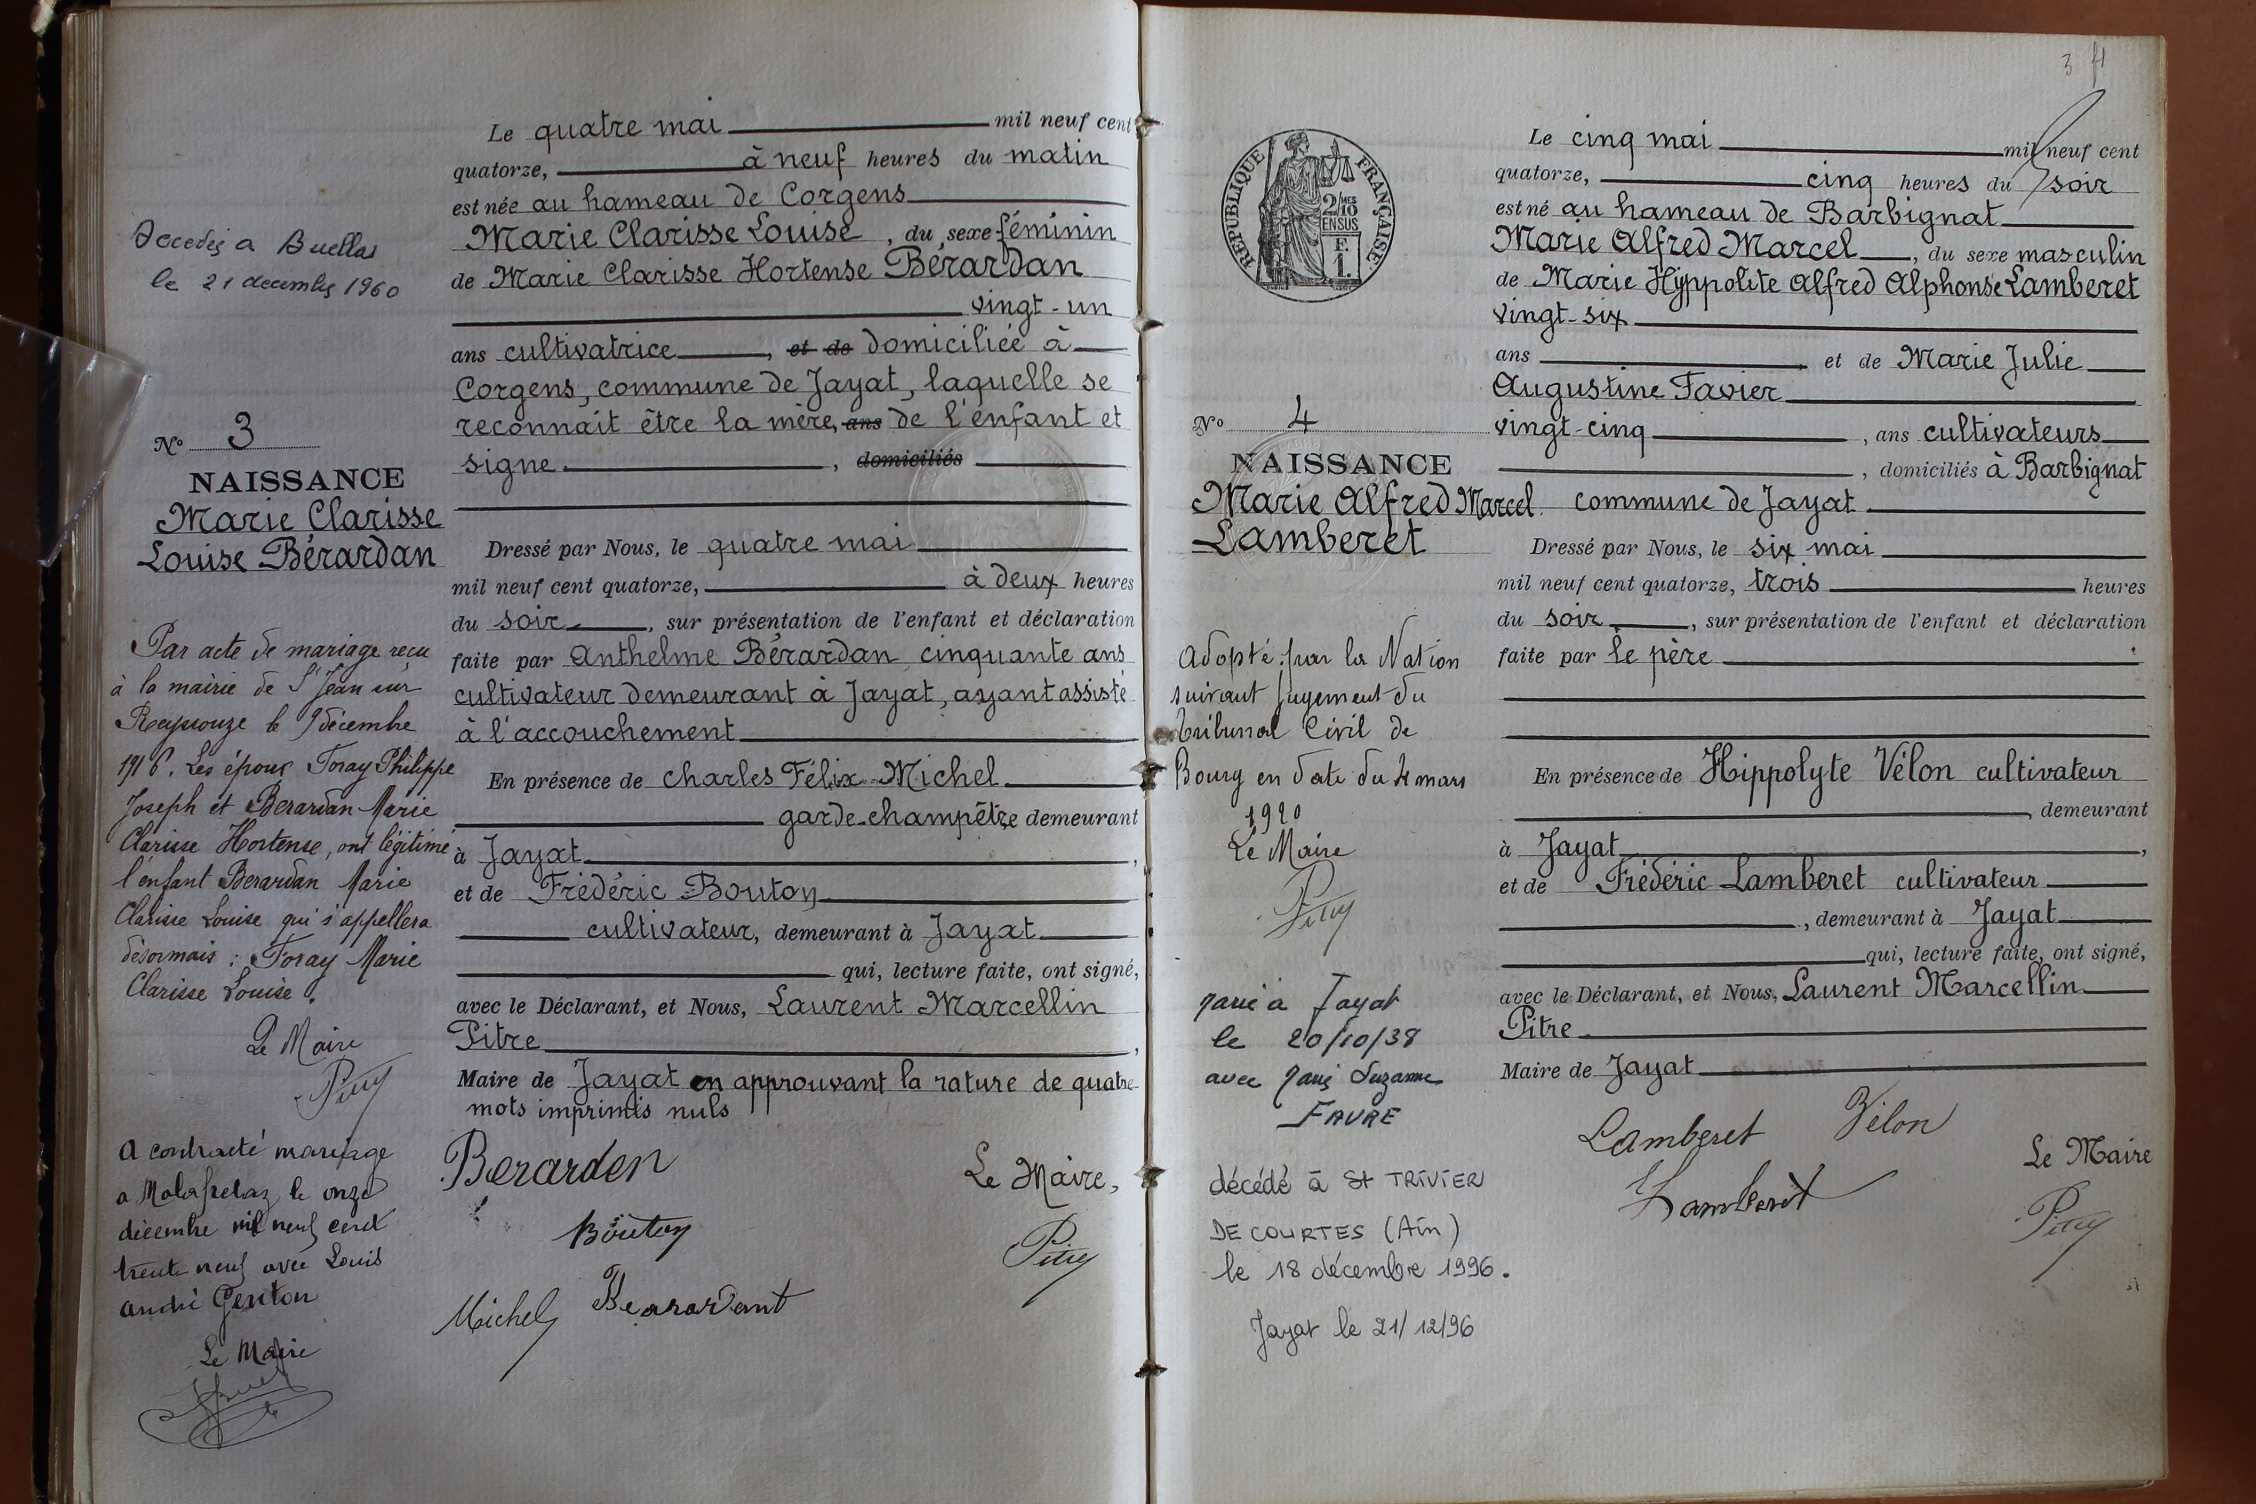 Decedée a Buellas
le 21 decembre 1960
N° 3
NAISSANCE
Marie Clarisse
Louise Bérardan
Par acte de mariage reçu
à la mairie de St Jean sur
Reyssouze le 9 décembre
1916. Les époux Foray Philippe
Joseph et Berardan Marie
Clarisse Hortense, ont légitimé
l'enfant Berardan Marie
Clarisse Louise qui s'appellera
désormais : Foray Marie
Clarisse Louise.
Le Maire
A contracté mariage
a Malafretaz le onze
décembre mil neuf cent
trente neuf avec Louis
andré Genton
Le Maire
Le quatre mai mil neuf cent
quatorze, à neuf heures du matin
est née au hameau de Corgens
Marie Clarisse Louise, du sexe féminin
de Marie Clarisse Hortense Bérardan
vingt-un
ans cultivatrice, et de domiciliée à
Corgens, commune de Jayat, laquelle se
reconnait être la mère, ans de l'enfant et
signe, domiciliés
Dressé par Nous, le quatre mai
mil neuf cent quatorze, à deux heures
du soir, sur présentation de l'enfant et déclaration
faite par Anthelme Bérardan cinquante ans
cultivateur demeurant à Jayat, ayant assisté
à l'accouchement
En présence de Charles Félix Michel
garde-champêtre demeurant
à Jayat,
et de Frédéric Bouton
cultivateur, demeurant à Jayat
qui, lecture faite, ont signé,
avec le Déclarant, et Nous, Laurent Marcellin
Pitre,
Maire de Jayat en approuvant la rature de quatre
mots imprimés nuls
Berarden
Le Maire,
Bouton
Michel
Berardant
3
RÉPUBLIQUE FRANÇAISE
2/10
EN SUS
F.
1.
N° 4
NAISSANCE
Marie Alfred Marcel
Lamberet
Adopté par la Nation
suivant jugement du
tribunal Civil de
Bourg en date du 4 mars
1920
Le Maire
Marié à Jayat
le 20/10/38
avec Marie Suzanne
FAVRE
décédé à St TRIVIER
DE COURTES (Ain)
le 18 décembre 1996.
Jayat le 21/12/96
Le cinq mai mil neuf cent
quatorze, cinq heures du soir
est né au hameau de Barbignat
Marie Alfred Marcel, du sexe masculin
de Marie Hyppolite Alfred Alphonse Lamberet
vingt-six
ans et de Marie Julie
Augustine Favier
vingt-cinq, ans cultivateurs
, domiciliés à Barbignat
commune de Jayat
Dressé par Nous, le six mai
mil neuf cent quatorze, trois heures
du soir, sur présentation de l'enfant et déclaration
faite par le père
En présence de Hippolyte Vélon cultivateur
, demeurant
à Jayat,
et de Frédéric Lamberet cultivateur
, demeurant à Jayat
qui, lecture faite, ont signé,
avec le Déclarant, et Nous, Laurent Marcellin
Pitre
Maire de Jayat
Lamberet Vélon
Le Maire
Lamberet